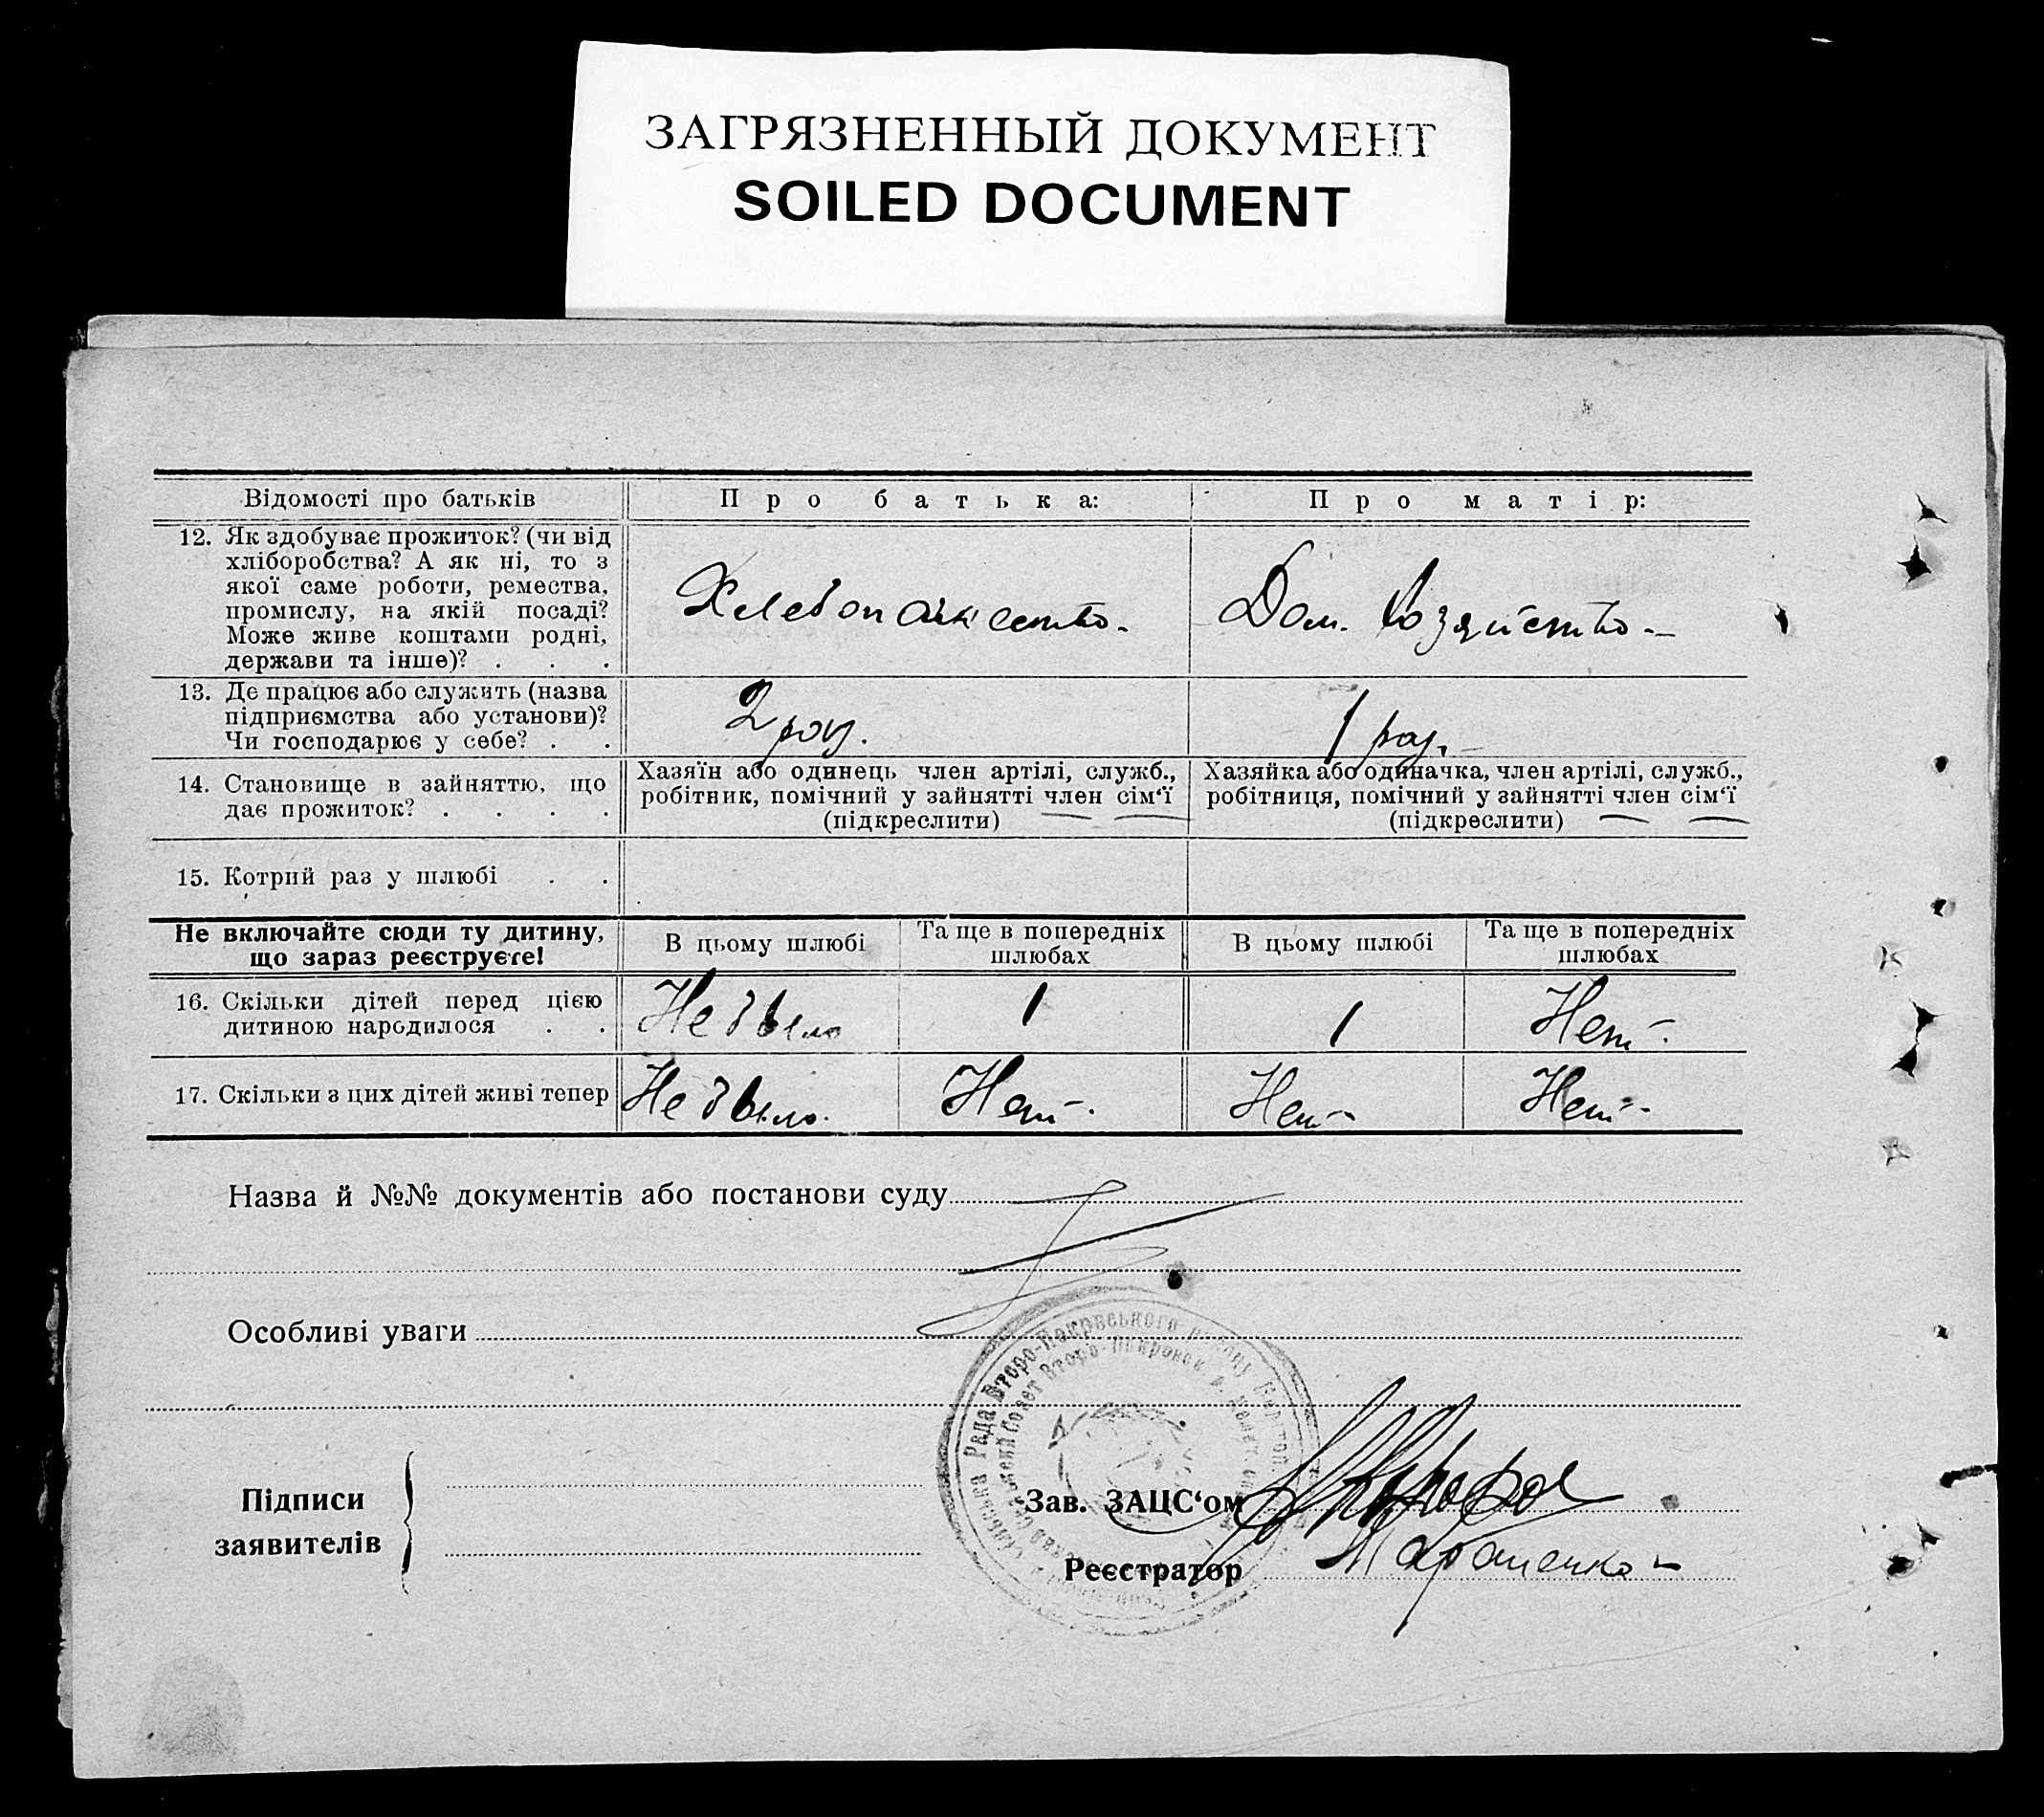 ЗАГРЯЗНЕННЫЙ ДОКУМЕНТ
SOILED DOCUMENT
Відомості про батьків
Про батька:
Про матір:
12. Як здобуває прожиток? (чи від
хліборобства? А як ні, то з
якої саме роботи, ремества,
промислу, на якій посаді?
Може живе коштами родні,
держави та інше)? . . .
Хлебопашество.
Дом. Хозяйство.
13. Де працює або служить (назва
підприємства або установи)?
Чи господарює у себе? . .
2 раз.
1 раз.
14. Становище в зайняттю, що
дає прожиток? . . . .
Хазяїн або одинець член артілі, служб.,
робітник, помічний у зайнятті член сім‘ї
(підкреслити)
Хазяйка або одиначка, член артілі, служб.,
робітниця, помічний у зайнятті член сім‘ї
(підкреслити)
15. Котрий раз у шлюбі . .
Не включайте сюди ту дитину,
що зараз реєструєте!
В цьому шлюбі
Та ще в попередніх
шлюбах
В цьому шлюбі
Та ще в попередніх
шлюбах
16. Скільки дітей перед цією
дитиною народилося . .
Не было
1
1
Нет.
17. Скільки з цих дітей живі тепер
Не было.
Нет.
Нет
Нет.
Назва й №№ документів або постанови суду
Особливі уваги
Рада Второ-Покрвського району
Совет Второ-Покровск. р.
Підписи
заявителів
Зав. ЗАЦС‘ом
Реєстратор